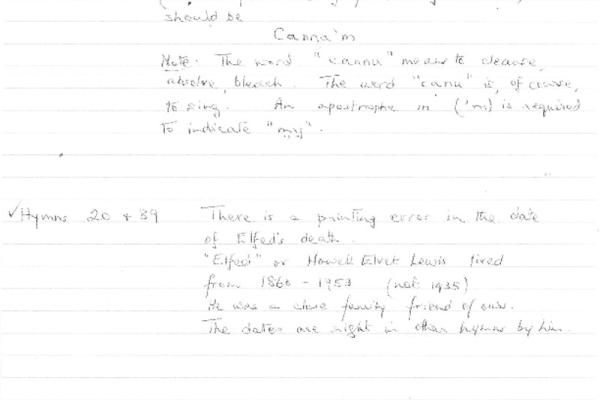 should be
Canna'm
Note: The word "cannu" means to cleanse,
absolve, bleach. The word "canu" is, of course,
to sing. An apostrophe m ('m) is required
to indicate "my".
✓Hymns 20 + 89 There is a printing error in the date
of Elfed's death.
"Elfed" or Howell Elvet Lewis lived
from 1860 - 1953 (not 1935)
He was a close family friend of ours.
The dates are right in other hymns by him.